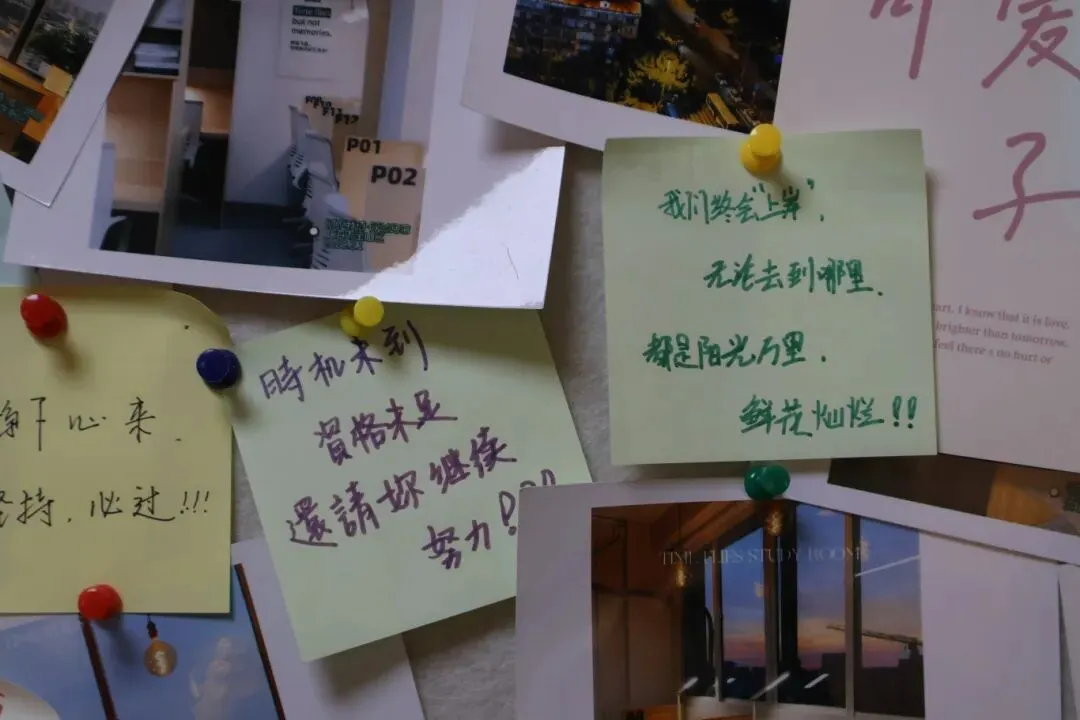 Time flies
but not
memories.
P01
P02
P10
P11
P12
爱
子
art. I know that it is love.
brighter than tomorrow.
feel there's no hurt or
我们终会"上岸",
无论去到哪里、
都是阳光万里.
鲜花灿烂!!
時机未到
資格未足
還請妳继续
努力!
静下心来.
坚持.必过!!!
TIME FLIES STUDY ROOM